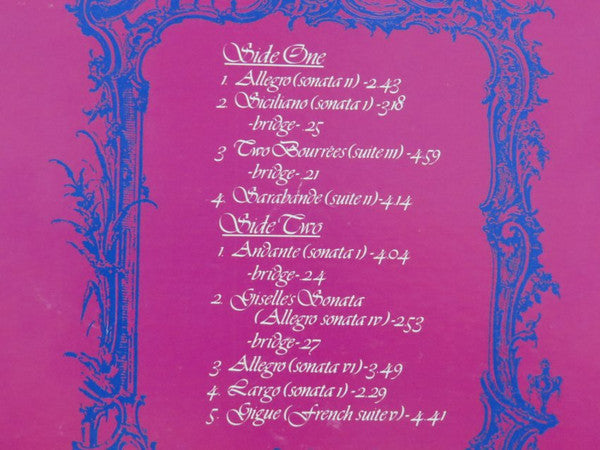 Side One
1. Allegro (sonata II) -2.43
2. Siciliano (sonata I) -3.18
-bridge- .25
3 Two Bourrées (suite III) -4.59
-bridge- .21
4. Sarabande (suite II) -4.14
Side Two
1. Andante (sonata I) -4.04
-bridge- .24
2. Giselle's Sonata
(Allegro sonata IV) -2.53
-bridge- .27
3 Allegro (sonata VI) -3.49
4. Largo (sonata I) -2.29
5. Gigue (French suite V) -4.41